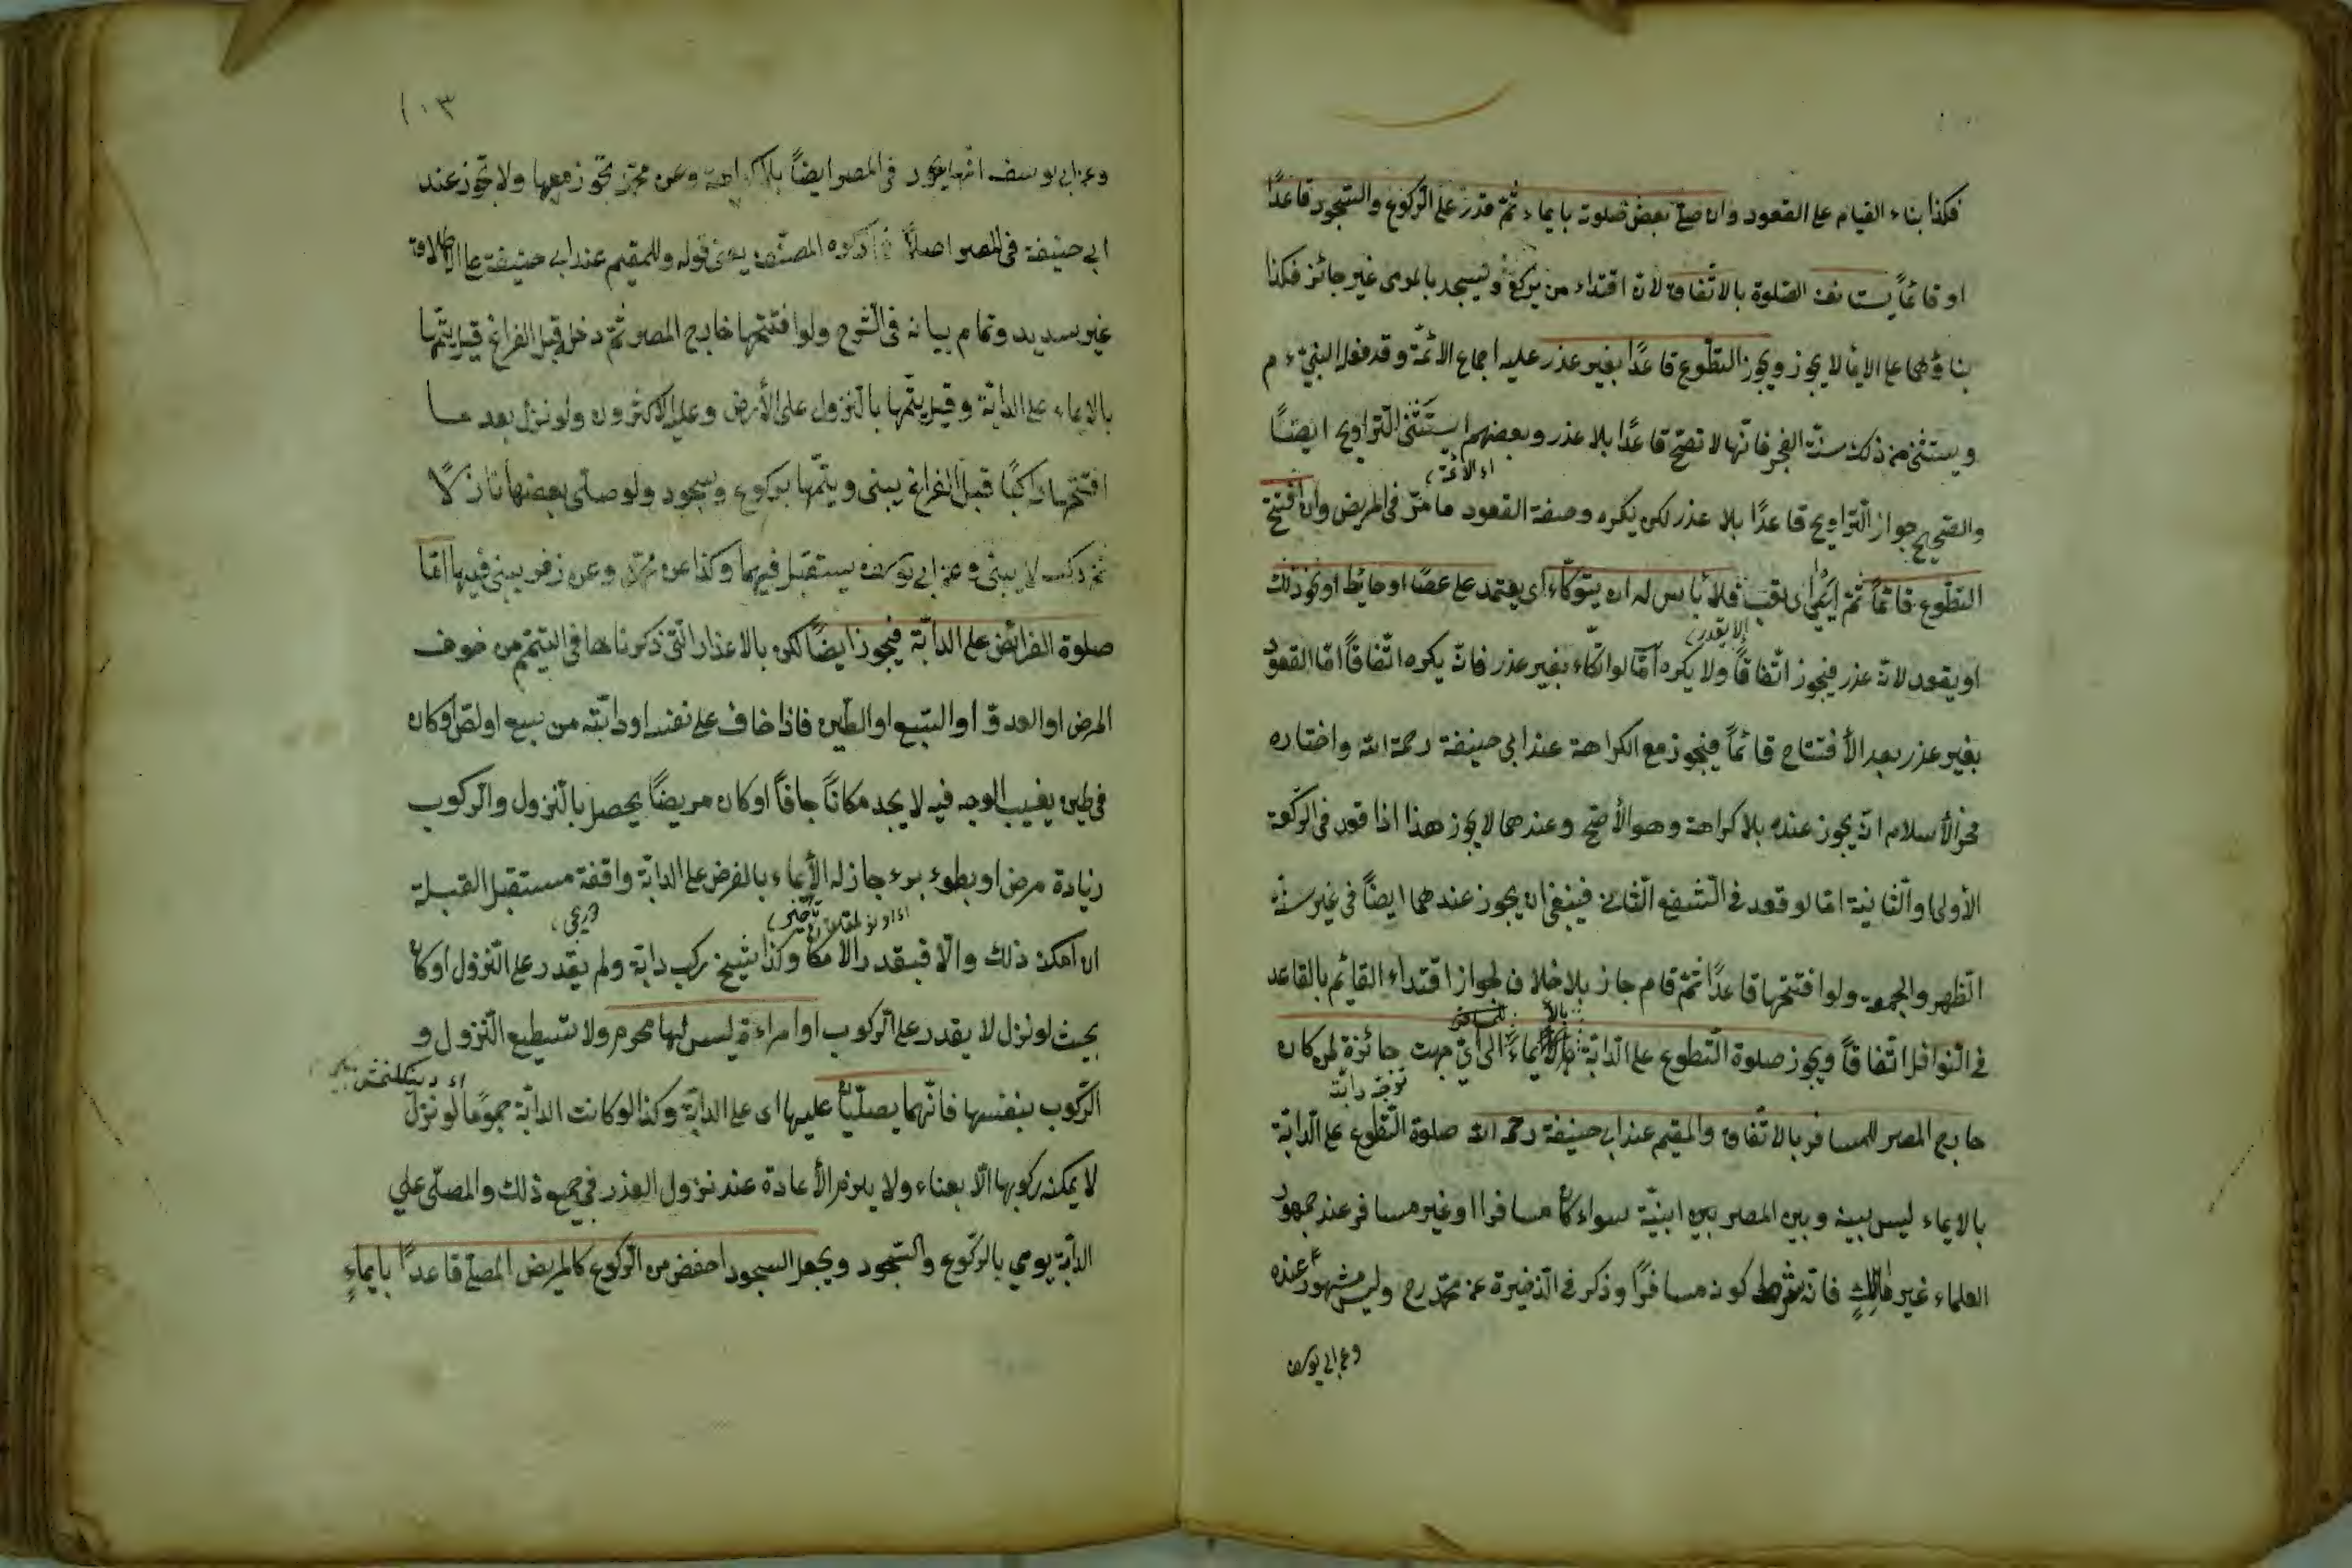 فكذا بناء القيام على القعود وان صلى بعض صلوته بايماء ثمّ قدر على الركوع والسّجود قاعدًا
او قائمًا يستانف الصّلوة بالاتّفاق لانّ اقتداء من يركع ويسجد بالمومى غير جائز فكذا
بناؤهما على الايما لا يجوز ويجوز التطوّع قاعدًا بغير عذر عليه اجماع الائمّة وقد فعله النبيّ ء م
ويستثنى من ذلك سنّة الفجر فانّها لا تصحّ قاعدًا بلا عذر وبعضهم استَثنى التّراويح ايضًا
اء الائمّة
والصّحيح جواز التّراويح قاعدًا بلا عذر لكن يكره وصفة القعود ما مرّ فى المريض وان افتتح
التطوّع قائمًا ثمّ اَعْيٰى اى تعب فلا بأس له ان يتوكّاء اى يعتمد على عصًا او حائط او نحو ذلك
إلا يقدر
او يقعد لانّه عذر فيجوز اتّفاقًا ولا يكره امّا لو اتّكاء بغير عذر فانّه يكره اتّفاقًا امّا القعود
بغير عذر بعد الأفتتاح قائمًا فيجوز مع الكراهة عند ابى حنيفة رحمة الله واختاره
فخر الأسلام انّه يجوز عنده بلا كراهة وهو الأصحّ وعندهما لا يجوز هذا اذا قعد فى الرّكعة
الأولى والّثانية امّا لو قعد فى الشّفع الثّانى فينبغى ان يجوز عندهما ايضًا فى غير سنّة
الظهر والجمعة ولو افتتحها قاعدًا ثمّ قام جاز بلا خلاف لجواز اقتداء القائم بالقاعد
للمسافر
فى النّوافل اتّفاقًا ويجوز صلوة التّطوع على الدّابّة بالأيماءً الى اىّ جهت جائزة لمن كان
توجّه دابّته
خارج المصر للمسافر بالاتّفاق والمقيم عند ابى حنيفة رحمه الله صلوة التّطوع على الدّابّة
بالايماء ليس بينه وبين المصر بين ابنيّة سواء كان مسافرا او غير مسافر عند جمهور
العلماء غير مالك فانّه يشرط كونه مسافرًا وذكر فى الذّخيرة عن محمّد رح وليس مشهور عنده
وعن ابى يوسف
١٠٣
وعن ابى يوسف انّها يجوز فى المصر ايضًا بلا كراهة وعن محمّد تجّوز معها ولا تجّوز عند
ابى حنيفة فى المصر اصلاً فما ذكره المصنّف يعنى قوله وللمقيم عند ابى حنيفة على اطلاقه
غير سديد وتمام بيانه فى الشّرح ولو افتتحها خارج المصر ثمّ دخل قبل الفراغ قيل يتمّها
بالايماء على الدابّة وقيل يتمّها بالنّزول على الأرض وعليه الاكثرون ولو نزل بعد ما
افتتحها راكبًا قبل الفراغ يبنى ويتمّها بركوع وسجود ولو صلّى بعضها نازلًا
ثمّ ركب لا يبنى وعن ابى يوسف يستقبل فيهما وكذا عن محمّد وعن زفر يبنى فيها امّا
صلوة الفرائض على الدابّة فيجوز ايضًا لكن بالاعذار الّتى ذكرناها فى التيمّم من خوف
المرض او العدوّ او السّبع او الطّين فاذا خاف على نفسه او دابّته من سبع او لصّ او كان
فى طين يغيب الوجه فيه لا يجد مكانًا جافًا او كان مريضًا يحصل بالّنزول والرّكوب
زيادة مرض او بطوء برء جاز له الأيماء بالفرض على الدابّة واقفة مستقبل القبلة
ان امكن ذلك والّا فبقدر الامكان وكذا شيخ ركب دابّة ولم يقدر على النّزول او كان
بحيث لو نزل لا يقدر على الرّكوب او امراءة ليس لها محرم ولا تستطيع النّزول و
الرّكوب بنفسها فانّهما يصلّيان عليها اى على الدابّة وكذا لو كانت الدابّة جموًحا لو نزل
لا يمكنه ركوبها الّا بعناء ولا يلزمه الأعادة عند نزول العذر فى جميع ذلك والمصلّى على
الدابّة يومى بالرّكوع والسّجود ويجعل السجود احفض من الرّكوع كالمريض المصلّى قاعدًا بايماءٍ